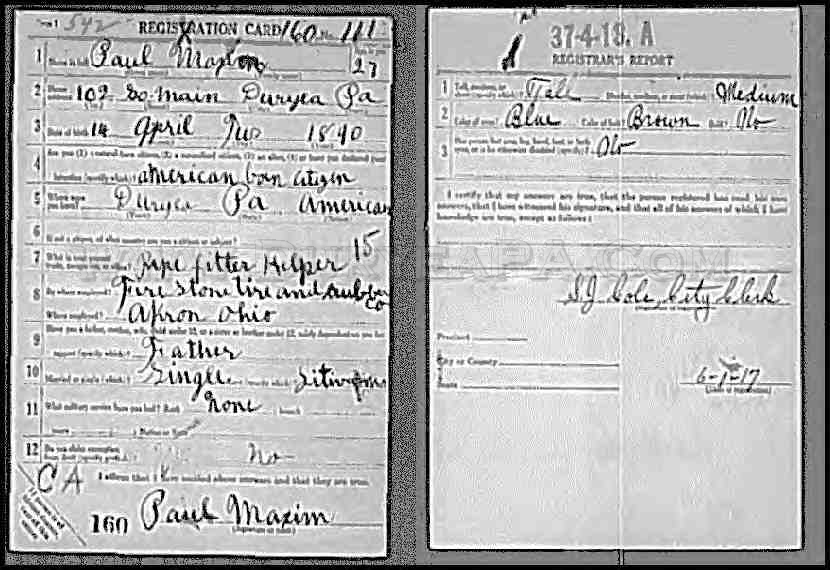 Form 1 542 REGISTRATION CARD 160 No. 111
1 Name in full Paul Maxim Age, in yrs. 27
2 Home address 102 So. Main Duryea Pa
3 Date of birth 14 April 1890
4 Are you (1) a natural-born citizen, (2) a naturalized citizen, (3) an alien, (4) or have you declared your
intention (specify which)? American born citizen
5 Where were you born? Duryea Pa American
6 If not a citizen, of what country are you a citizen or subject?
7 What is your present trade, occupation, or office? Pipe fitter Helper 15
8 By whom employed? Fire Stone tire and rubber Co
Where employed? Akron Ohio
9 Have you a father, mother, wife, child under 12, or a sister or brother under 12, solely dependent on you for
support (specify which)? Father
10 Married or single (which)? Single Race (specify which)?
11 What military service have you had? Rank None branch
years Nation or State
12 Do you claim exemption from draft (specify grounds)? No
CA I affirm that I have verified above answers and that they are true.
160 Paul Maxim
(Signature or mark)
37-4-19. A
REGISTRAR'S REPORT
1 Tall, medium, or short (specify which)? Tall Slender, medium, or stout (which)? Medium
2 Color of eyes? Blue Color of hair? Brown Bald? No
3 Has person lost arm, leg, hand, foot, or both eyes, or is he otherwise disabled (specify)? No
I certify that my answers are true, that the person registered has read his own
answers, that I have witnessed his signature, and that all of his answers of which I have
knowledge are true, except as follows:
WWW.DURYEAPA.COM
S.J. Cole, City Clerk
(Signature of registrar)
Precinct
City or County
State
6-1-17
(Date of registration)